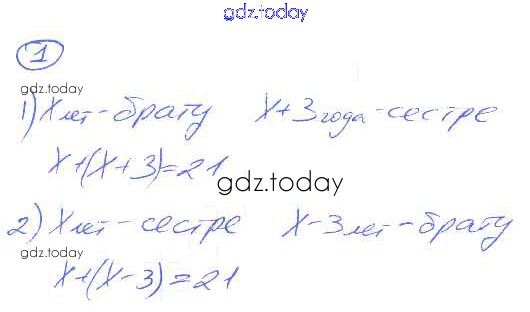 gdz.today
1
gdz.today
1) X лет - брату X + 3 года - сестре
X+(X+3)=21
gdz.today
2) X лет - сестре X - 3 лет - брату
gdz.today
X+(X-3)=21